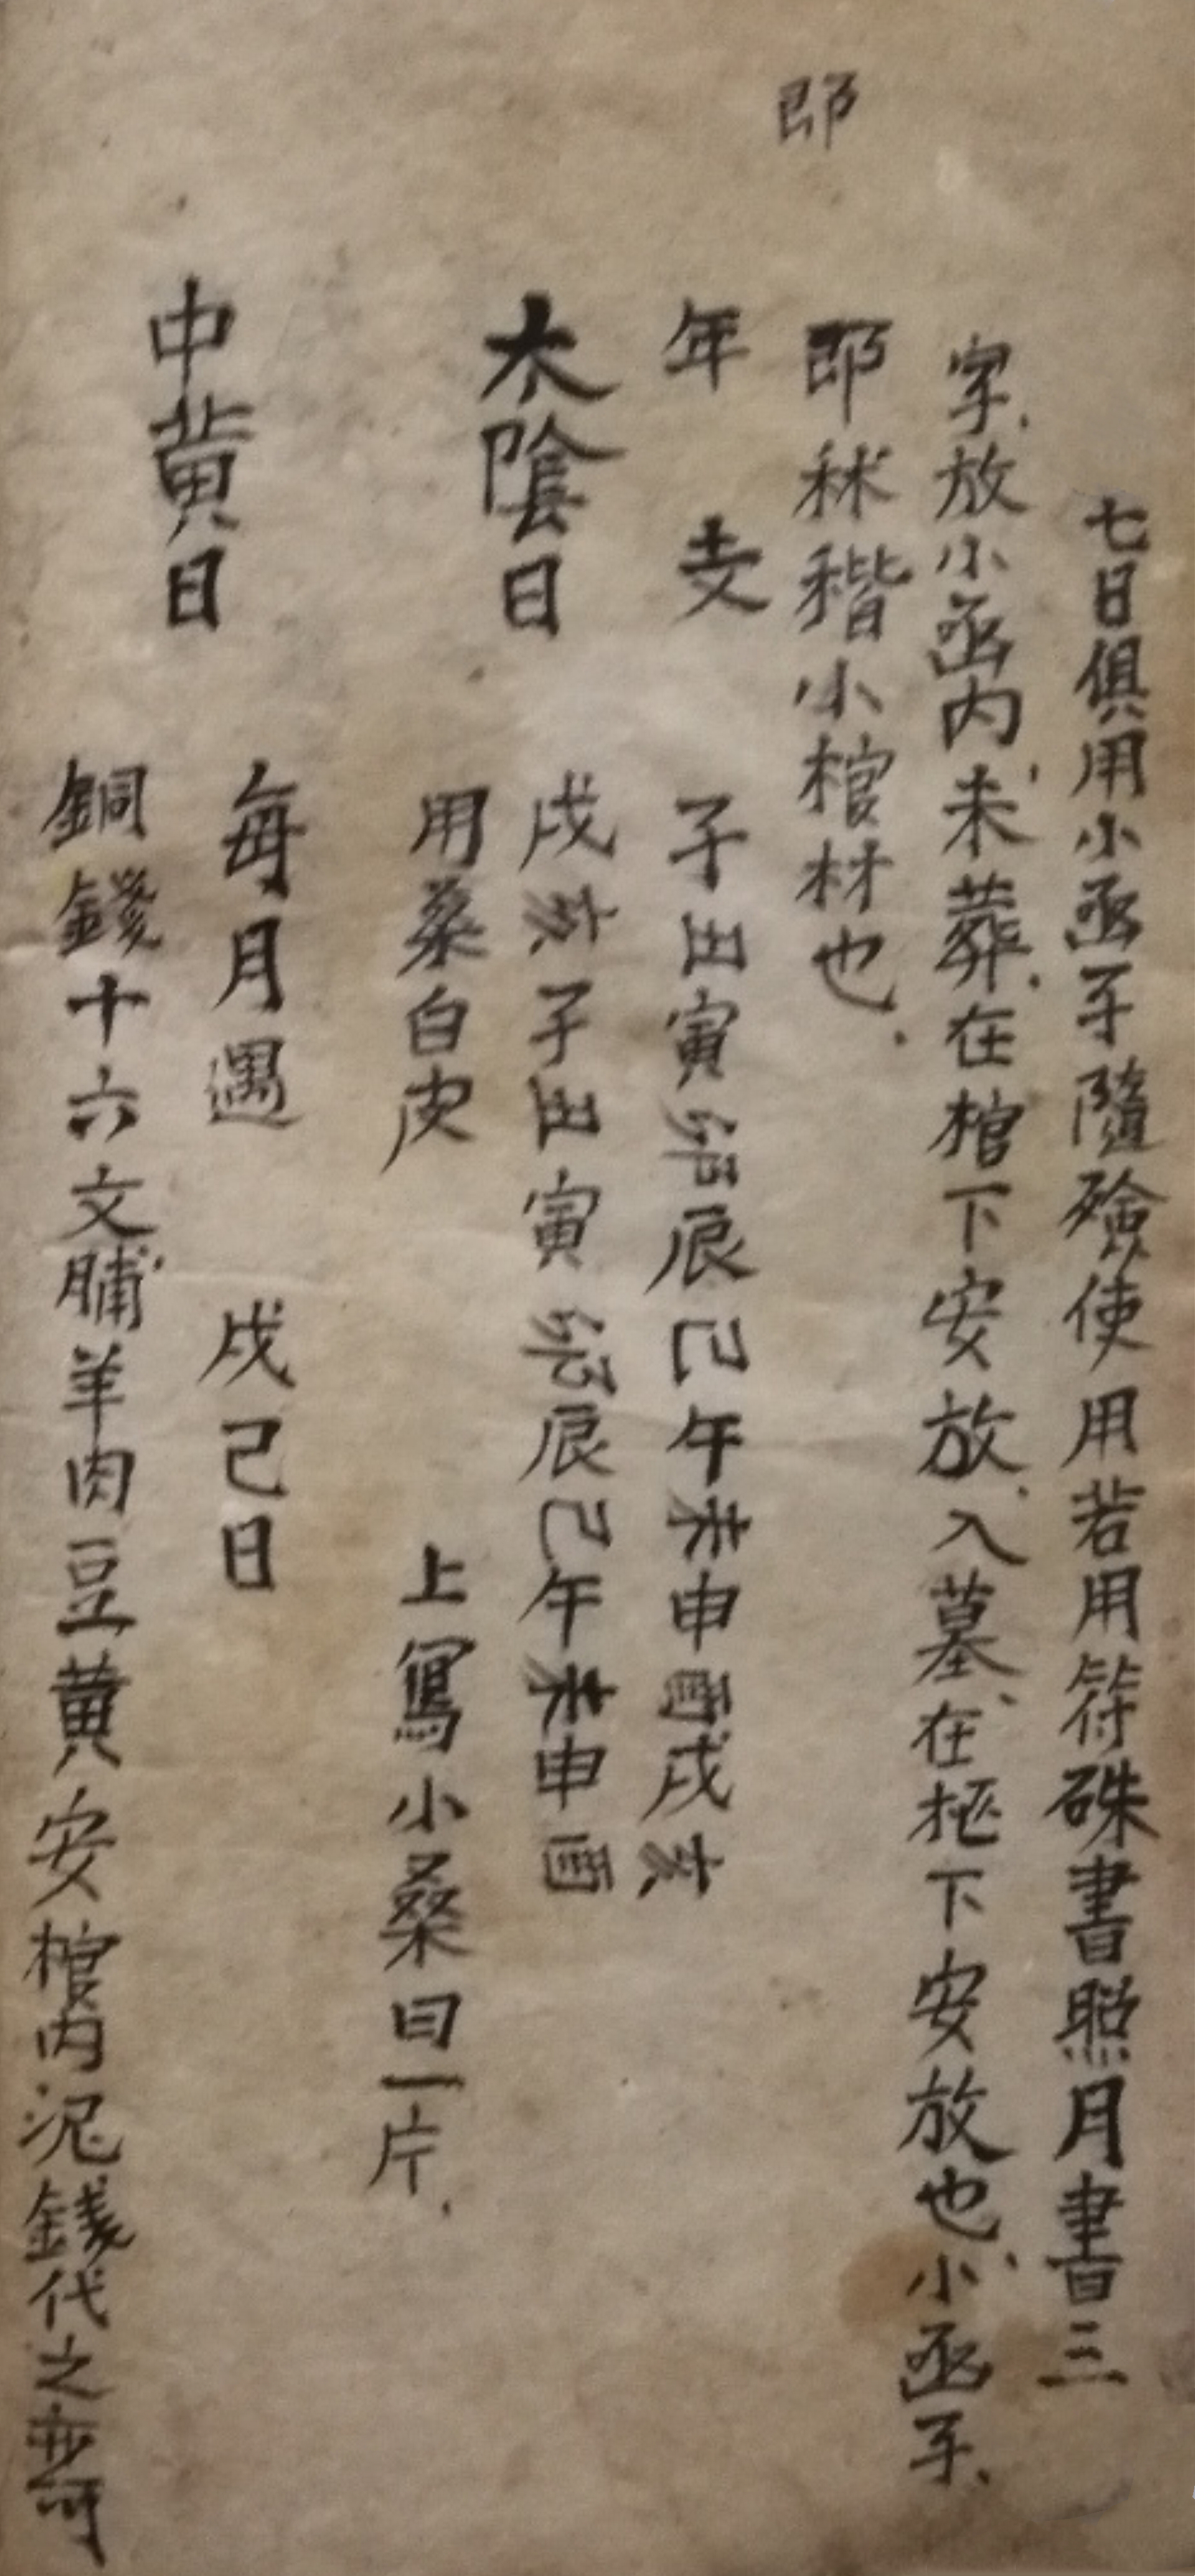 七日俱用小函子隨殮使用若用符硃書照月書三
字放小函内未葬在棺下安放入墓在柩下安放也小函子
即
即秫稭小棺材也
年支 子丑寅卯辰巳午未申酉戌亥
太陰日 戌亥子丑寅卯辰巳午未申酉
用桑白皮 上寫小桑曰一片
中黃日 每月遇 戊己日
銅錢十六文脯羊肉豆黄安棺内泥錢代之亦可